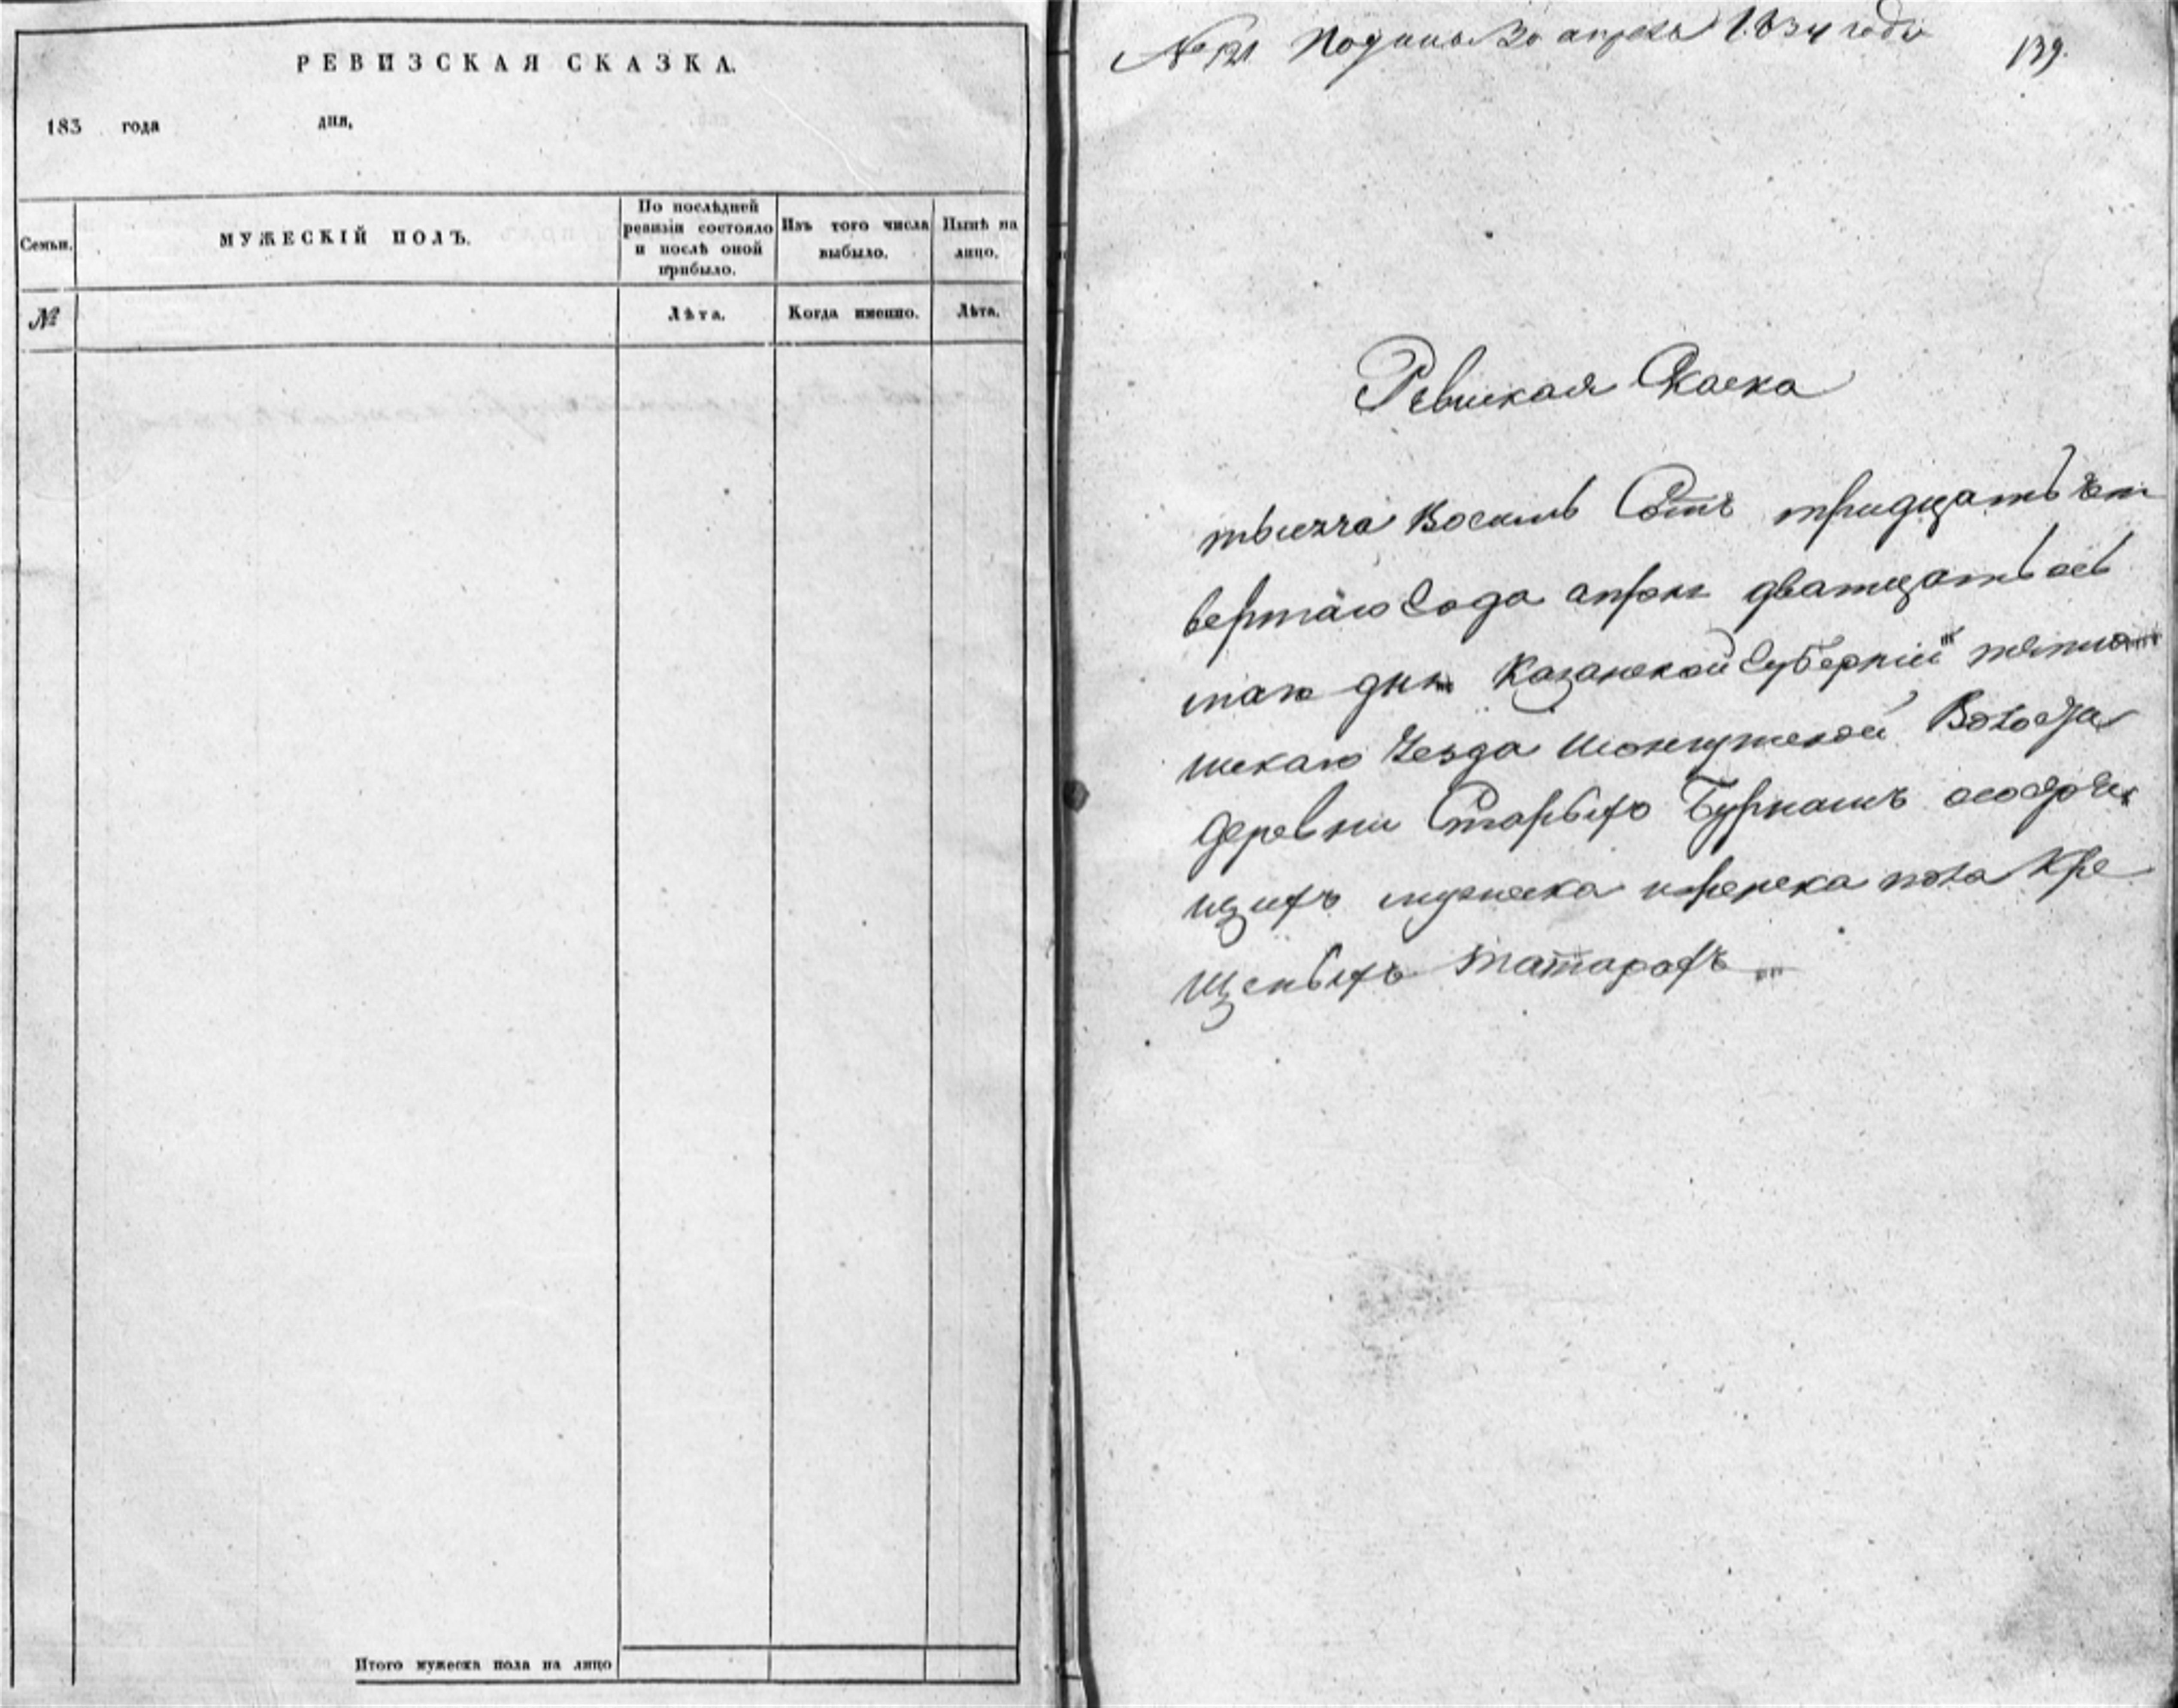 РЕВИЗСКАЯ СКАЗКА.
183 года дня,
Семьи.
МУЖЕСКІЙ ПОЛЪ.
По послѣдней
ревизіи состояло
и послѣ оной
прибыло.
Изъ того числа
выбыло.
Нынѣ на
лицо.
№
Лѣта.
Когда именно.
Лѣта.
Итого мужеска пола на лицо
№ 121 Подана 30 апреля 1834 года
139.
Ревиская Скаска
тысяча Восемь Сотъ тридцать чет
вертаго года апреля дватцать
таго дня Казанской Губерніи тетю
шскаго Уезда Волости
деревни Старыхъ Бурнашъ о состоя
щихъ мужеска и женска пола Кре
щеныхъ татарахъ